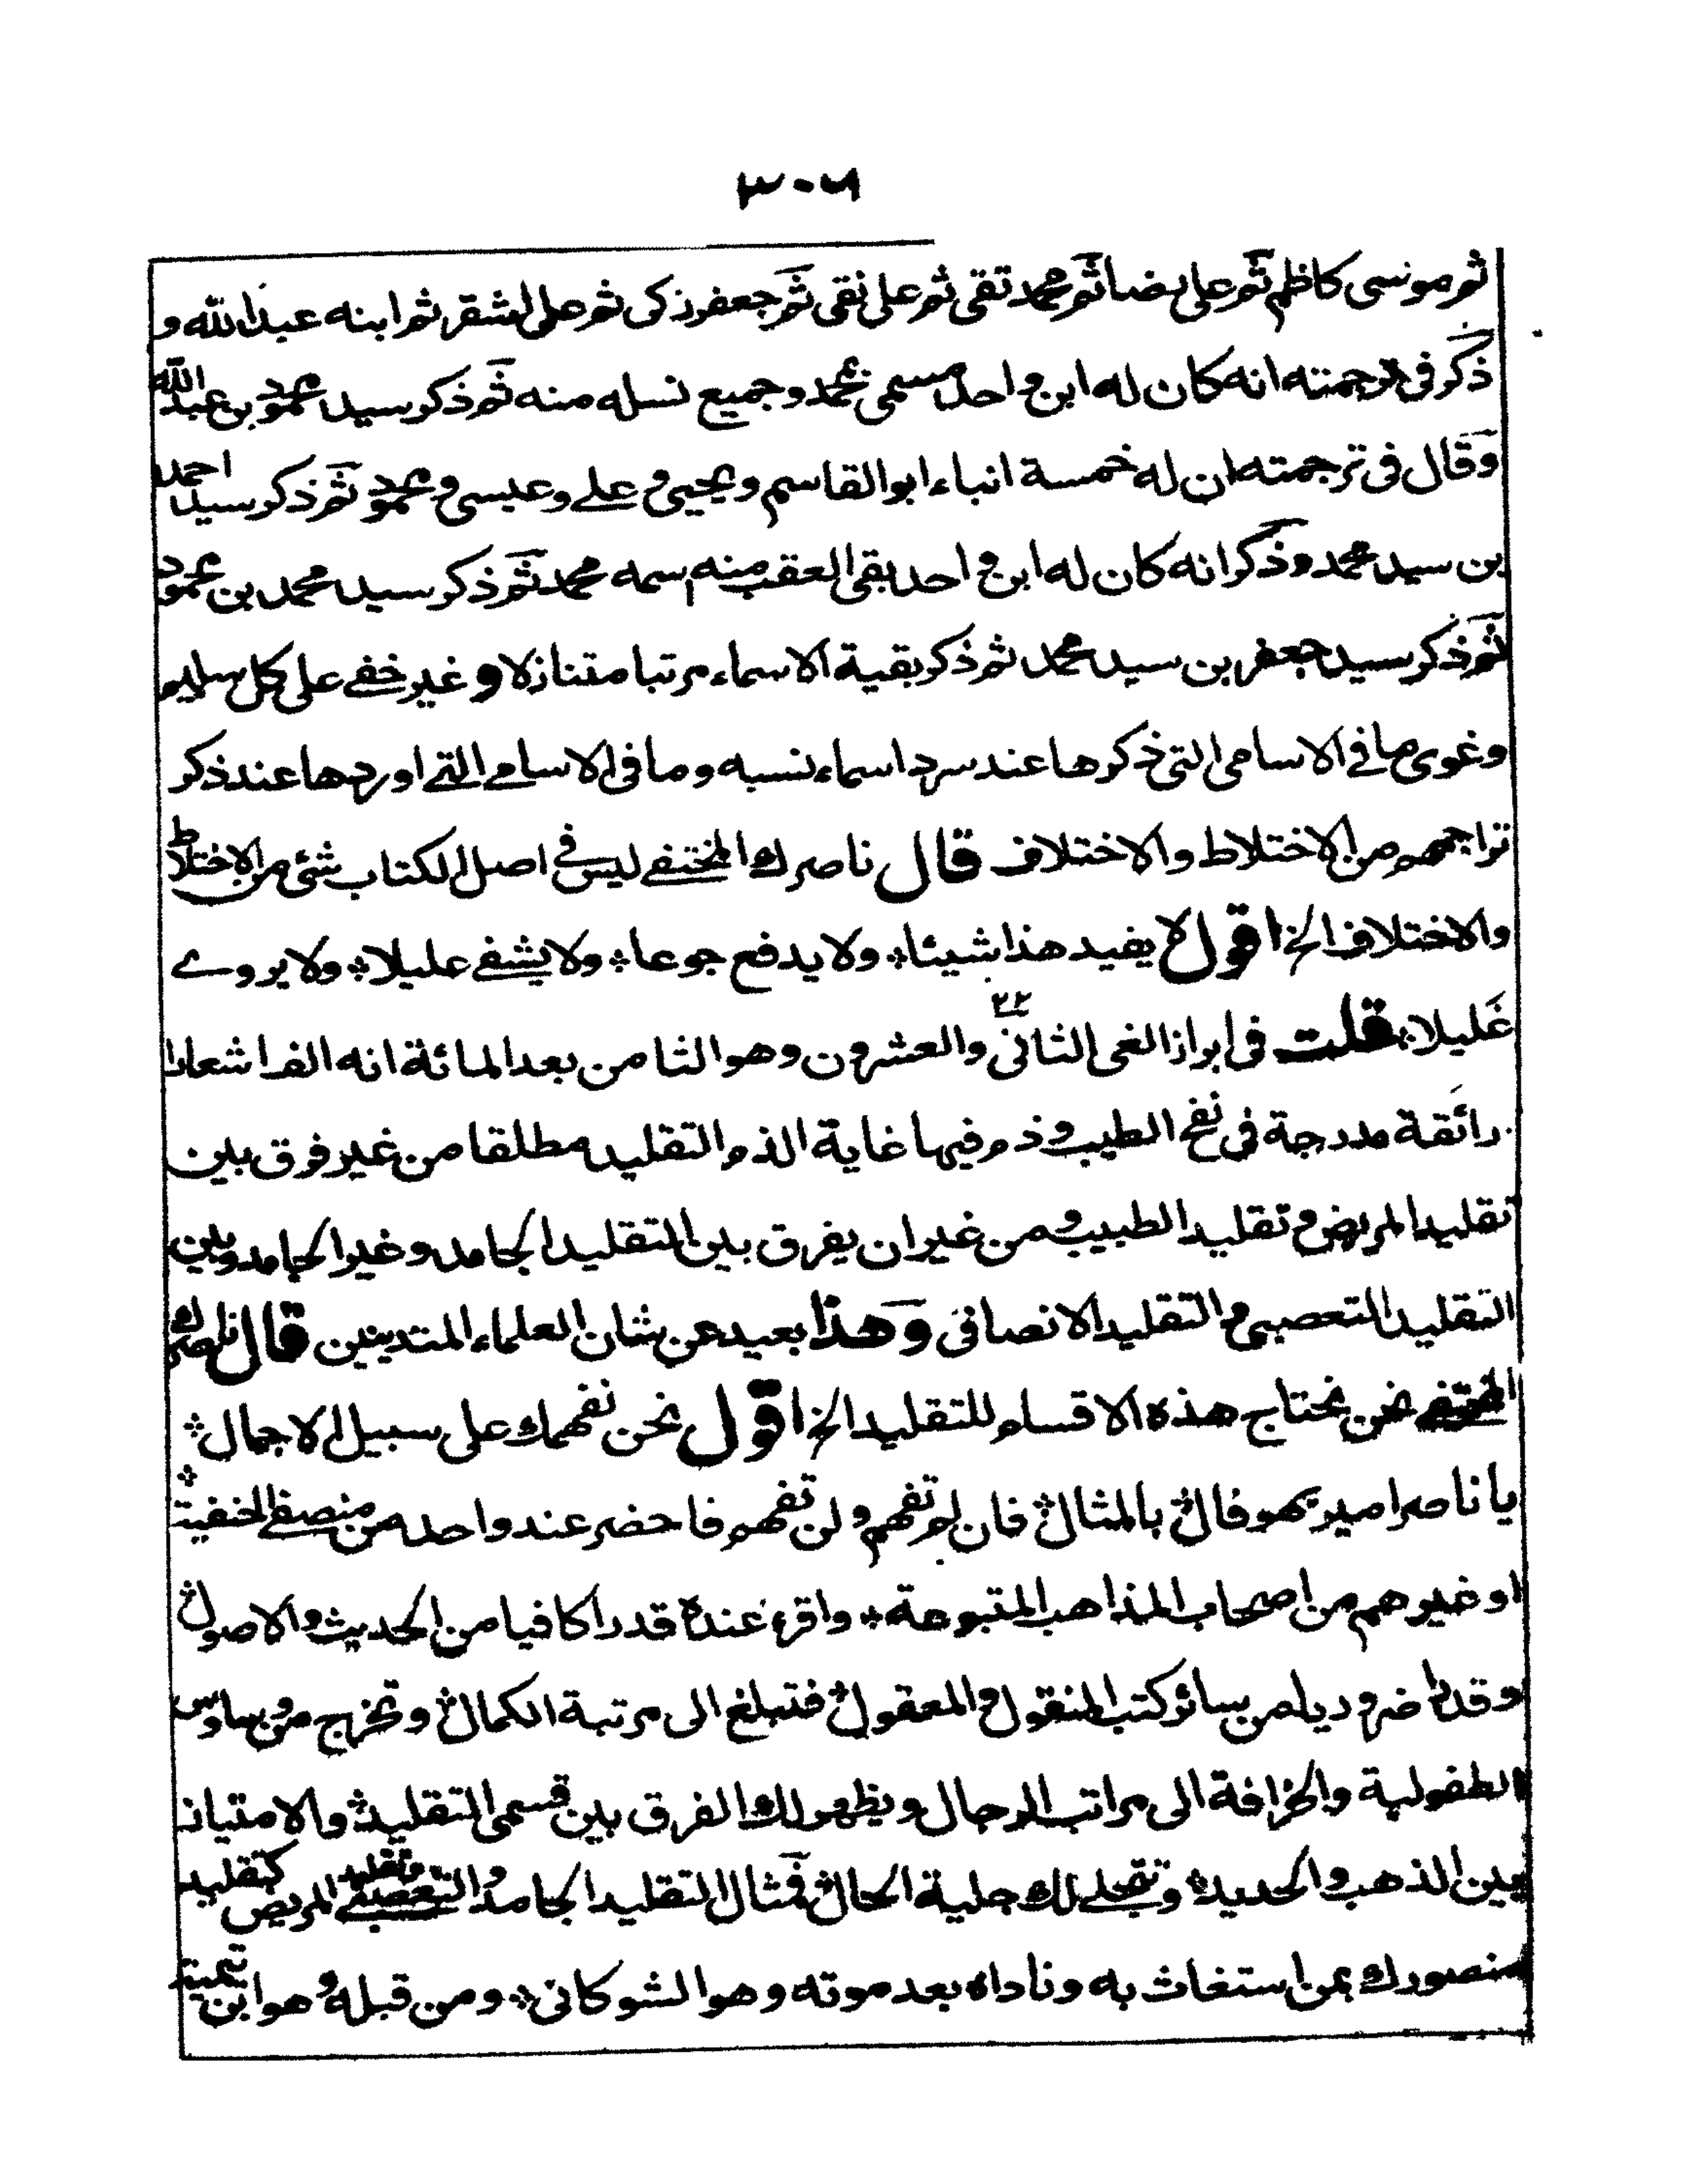 ٣٠٦
ثم موسى كاظم ثم على رضا ثم محمد تقى ثم على نقى ثم جعفر زكى ثم على اشقر ثم ابنه عبد الله و
ذكر فى ترجمته انه كان له ابن واحد مسمى بمحمد وجميع نسله منه ثم ذكر سيد محمود بن عبد الله
وقال فى ترجمته ان له خمسة انباء ابو القاسم ويحيى وعلى وعيسى ومحمود ثم ذكر سيد احمد
بن سيد محمد وذكر انه كان له ابن واحد بقى العقب منه اسمه محمد ثم ذكر سيد محمد بن محمود
ثم ذكر سيد جعفر بن سيد محمد ثم ذكر بقية الاسماء مرتبا متنازلا و غير خفى على كل سليم
وغوى ما فى الاسامى التى ذكرها عند سرد اسماء نسبه وما فى الاسامى التى اوردها عند ذكر
تراجمهم من الاختلاط والاختلاف قال ناصرك المختفى ليس فى اصل الكتاب شئ من الاختلاط
والاختلاف الخ اقول لا يفيد هذا شيئا؞ ولا يدفع جوعا؞ ولا يشفى عليلا؞ ولا يروى
غليلا؞ قلت فى ابراز الغى الثانى ٢٢ والعشرون وهو الثامن بعد المائة انه الف اشعارا
رائقة مدرجة فى نفح الطيب وذم فيها غاية الذم التقليد مطلقا من غير فرق بين
تقليد المريض وتقليد الطبيب ومن غير ان يفرق بين التقليد الجامد وغير الجامد وبين
التقليد التعصبى والتقليد الانصافى وهذا بعيد عن شان العلماء المتدينين قال ناصرك
المختفى نحن نحتاج هذه الاقسام للتقليد الخ اقول نحن نفهمك على سبيل الاجمال؞
يا ناصرا ميربهوفال؞ بالمثال؞ فان لم تفهم ولن تفهم فاحضر عند واحد من منصفى الحنفية؞
او غيرهم من اصحاب المذاهب المتبوعة؞ واقرء عنده قدرا كافيا من الحديث والاصول؞
وقدرا ضروريا من سائر كتب المنقول والمعقول؞ فتبلغ الى مرتبة الكمال؞ وتخرج من وساوس
الطفولية والخرافة الى مراتب الرجال ويظهر لك الفرق بين قسمى التقليد؞ والامتياز
بين الذهب والحديد؞ وتنجلى لك جلية الحال؞ فمثال التقليد الجامد والتعصبى وتقليد المريض كتقليد
منصورك بمن استغاث به وناداه بعد موته وهو الشوكانى؞ ومن قبله وهو ابن تيمية